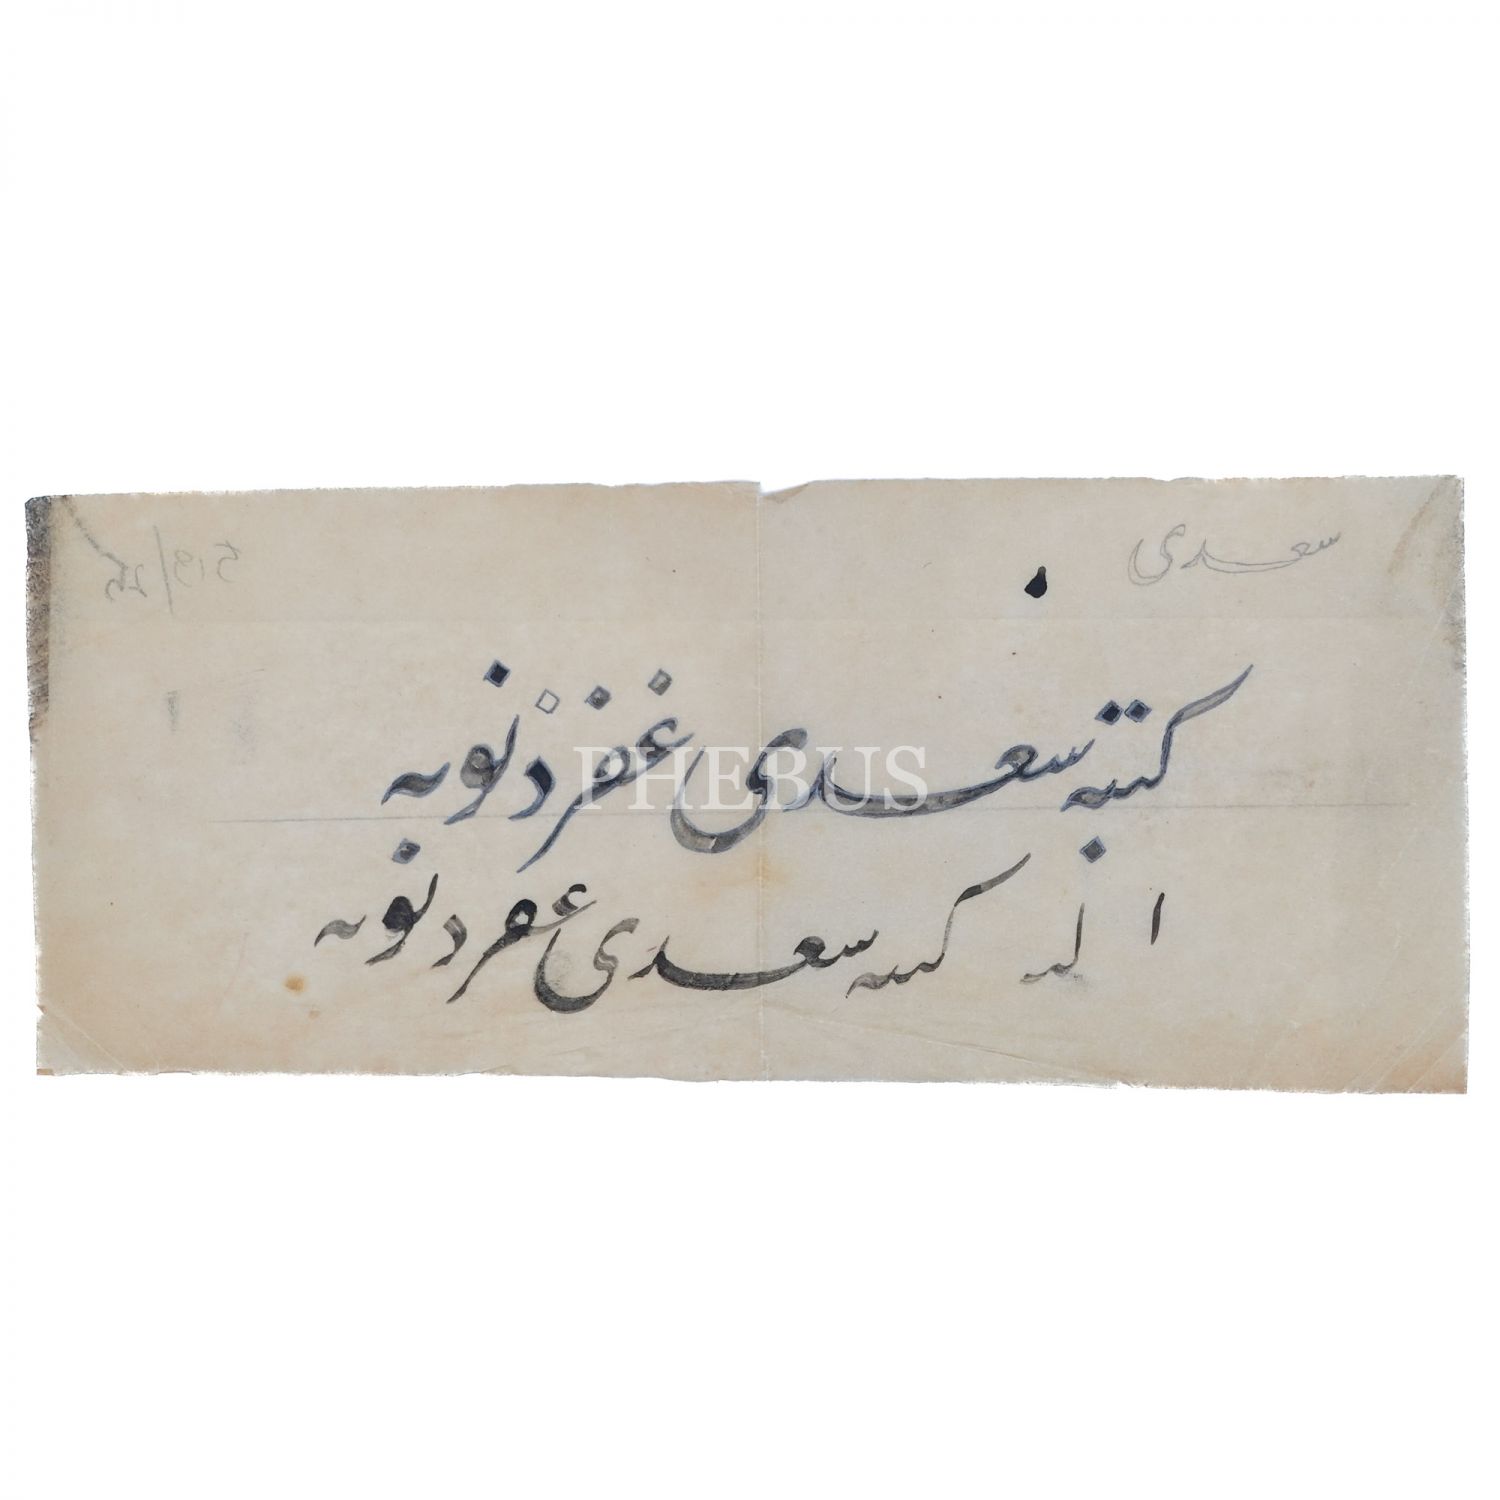 سعدی
كتبه سعدی غفر ذنوبه
كتبه سعدی غفر ذنوبه
PHEBUS